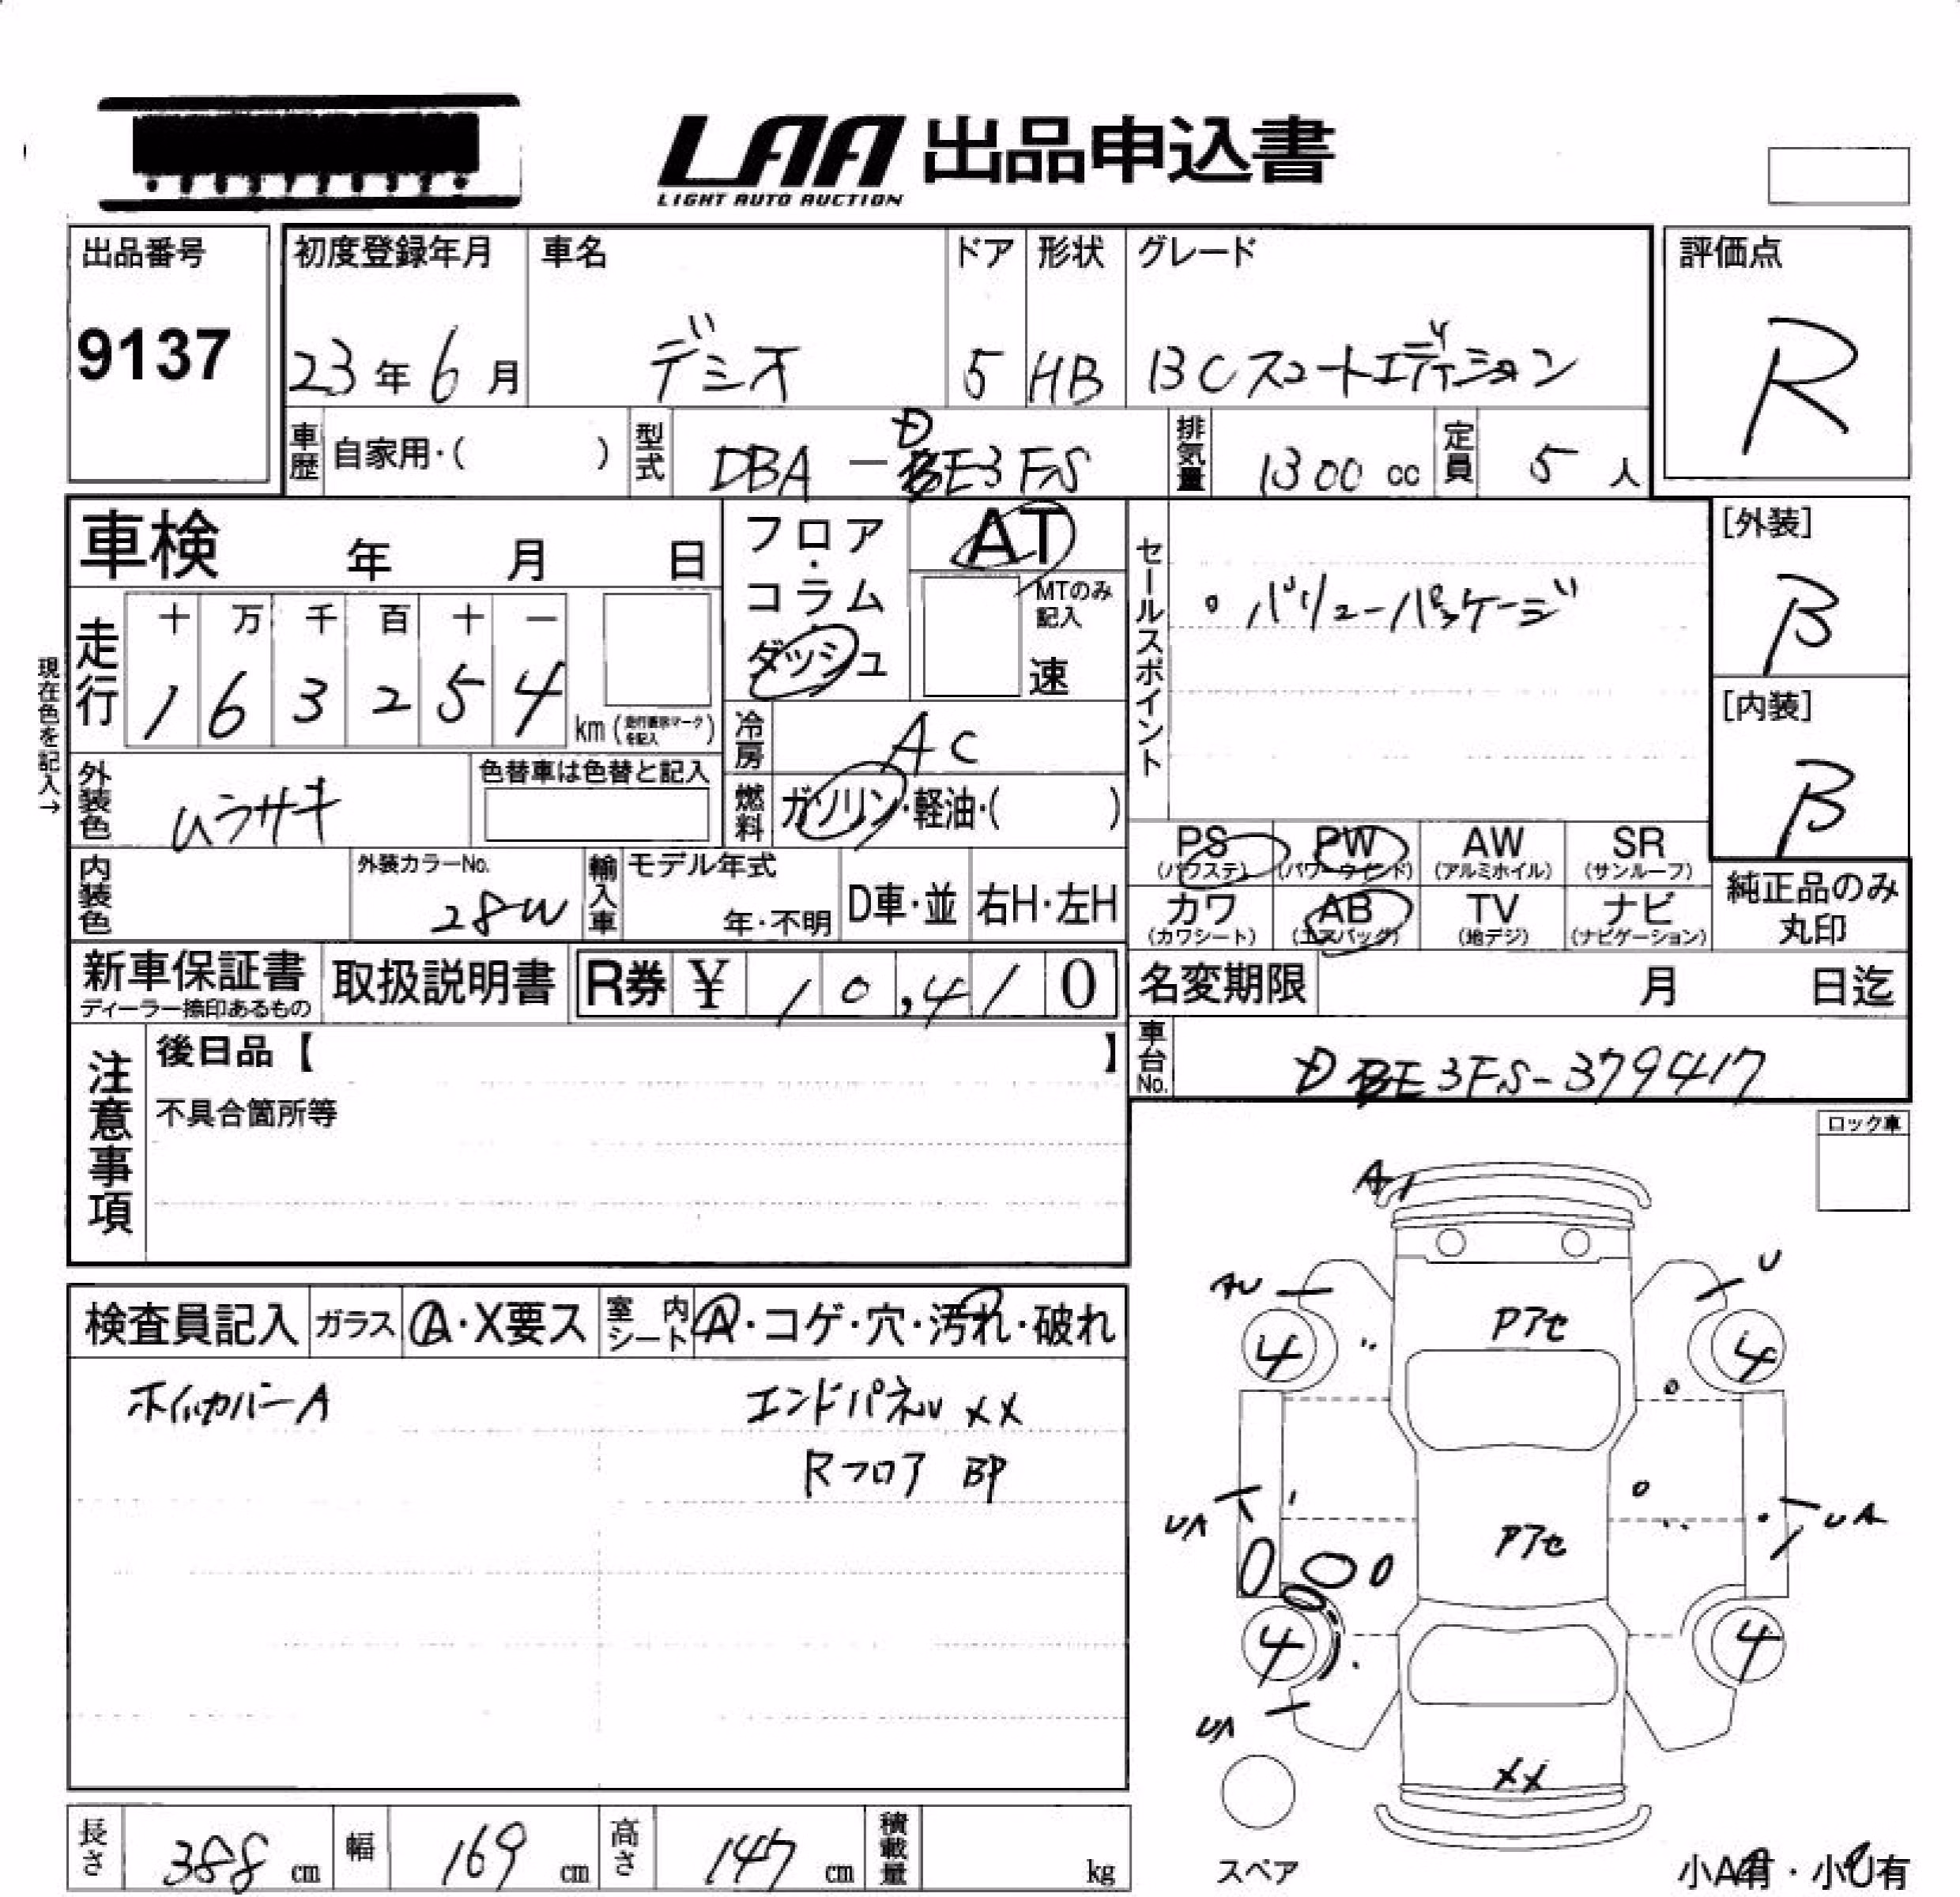 LAA 出品申込書
LIGHT AUTO AUCTION
出品番号
9137
初度登録年月
23年6月
車名
デミオ
ドア
5
形状
HB
グレード
13Cスマートエディション
評価点
R
車歴
自家用・( )
型式
DBA-DE3FS
排気量
1300 cc
定員
5人
車検 年 月 日
現在色を記入→
走行
十 万 千 百 十 一
1 6 3 2 5 4
km(走行表示マークを記入)
フロア・コラム
ダッシュ
AT
MTのみ記入
速
冷房
AC
燃料
ガソリン・軽油・( )
外装色
ムラサキ
色替車は色替と記入
内装色
外装カラーNo.
28W
輸入車
モデル年式
年・不明
D車・並
右H・左H
セールスポイント
・バリューパッケージ
[外装]
B
[内装]
B
PS
(パワステ)
PW
(パワーウインド)
AW
(アルミホイル)
SR
(サンルーフ)
カワ
(カワシート)
AB
(エアバッグ)
TV
(地デジ)
ナビ
(ナビゲーション)
純正品のみ
丸印
新車保証書
ディーラー捺印あるもの
取扱説明書
R券 ¥ 10,410
名変期限 月 日迄
車台No.
DE3FS-379417
注意事項
後日品【 】
不具合箇所等
ロック車
検査員記入
ガラス
A・X要ス
室内シート
A・コゲ・穴・汚れ・破れ
ホイルカバーA
エンドパネルXX
Rフロア BP
A1
AU
U
4
4
Pアセ
UA
UA
Pアセ
4
4
UA
XX
スペア
小A有・小U有
長さ
388 cm
幅
169 cm
高さ
147 cm
積載量
kg